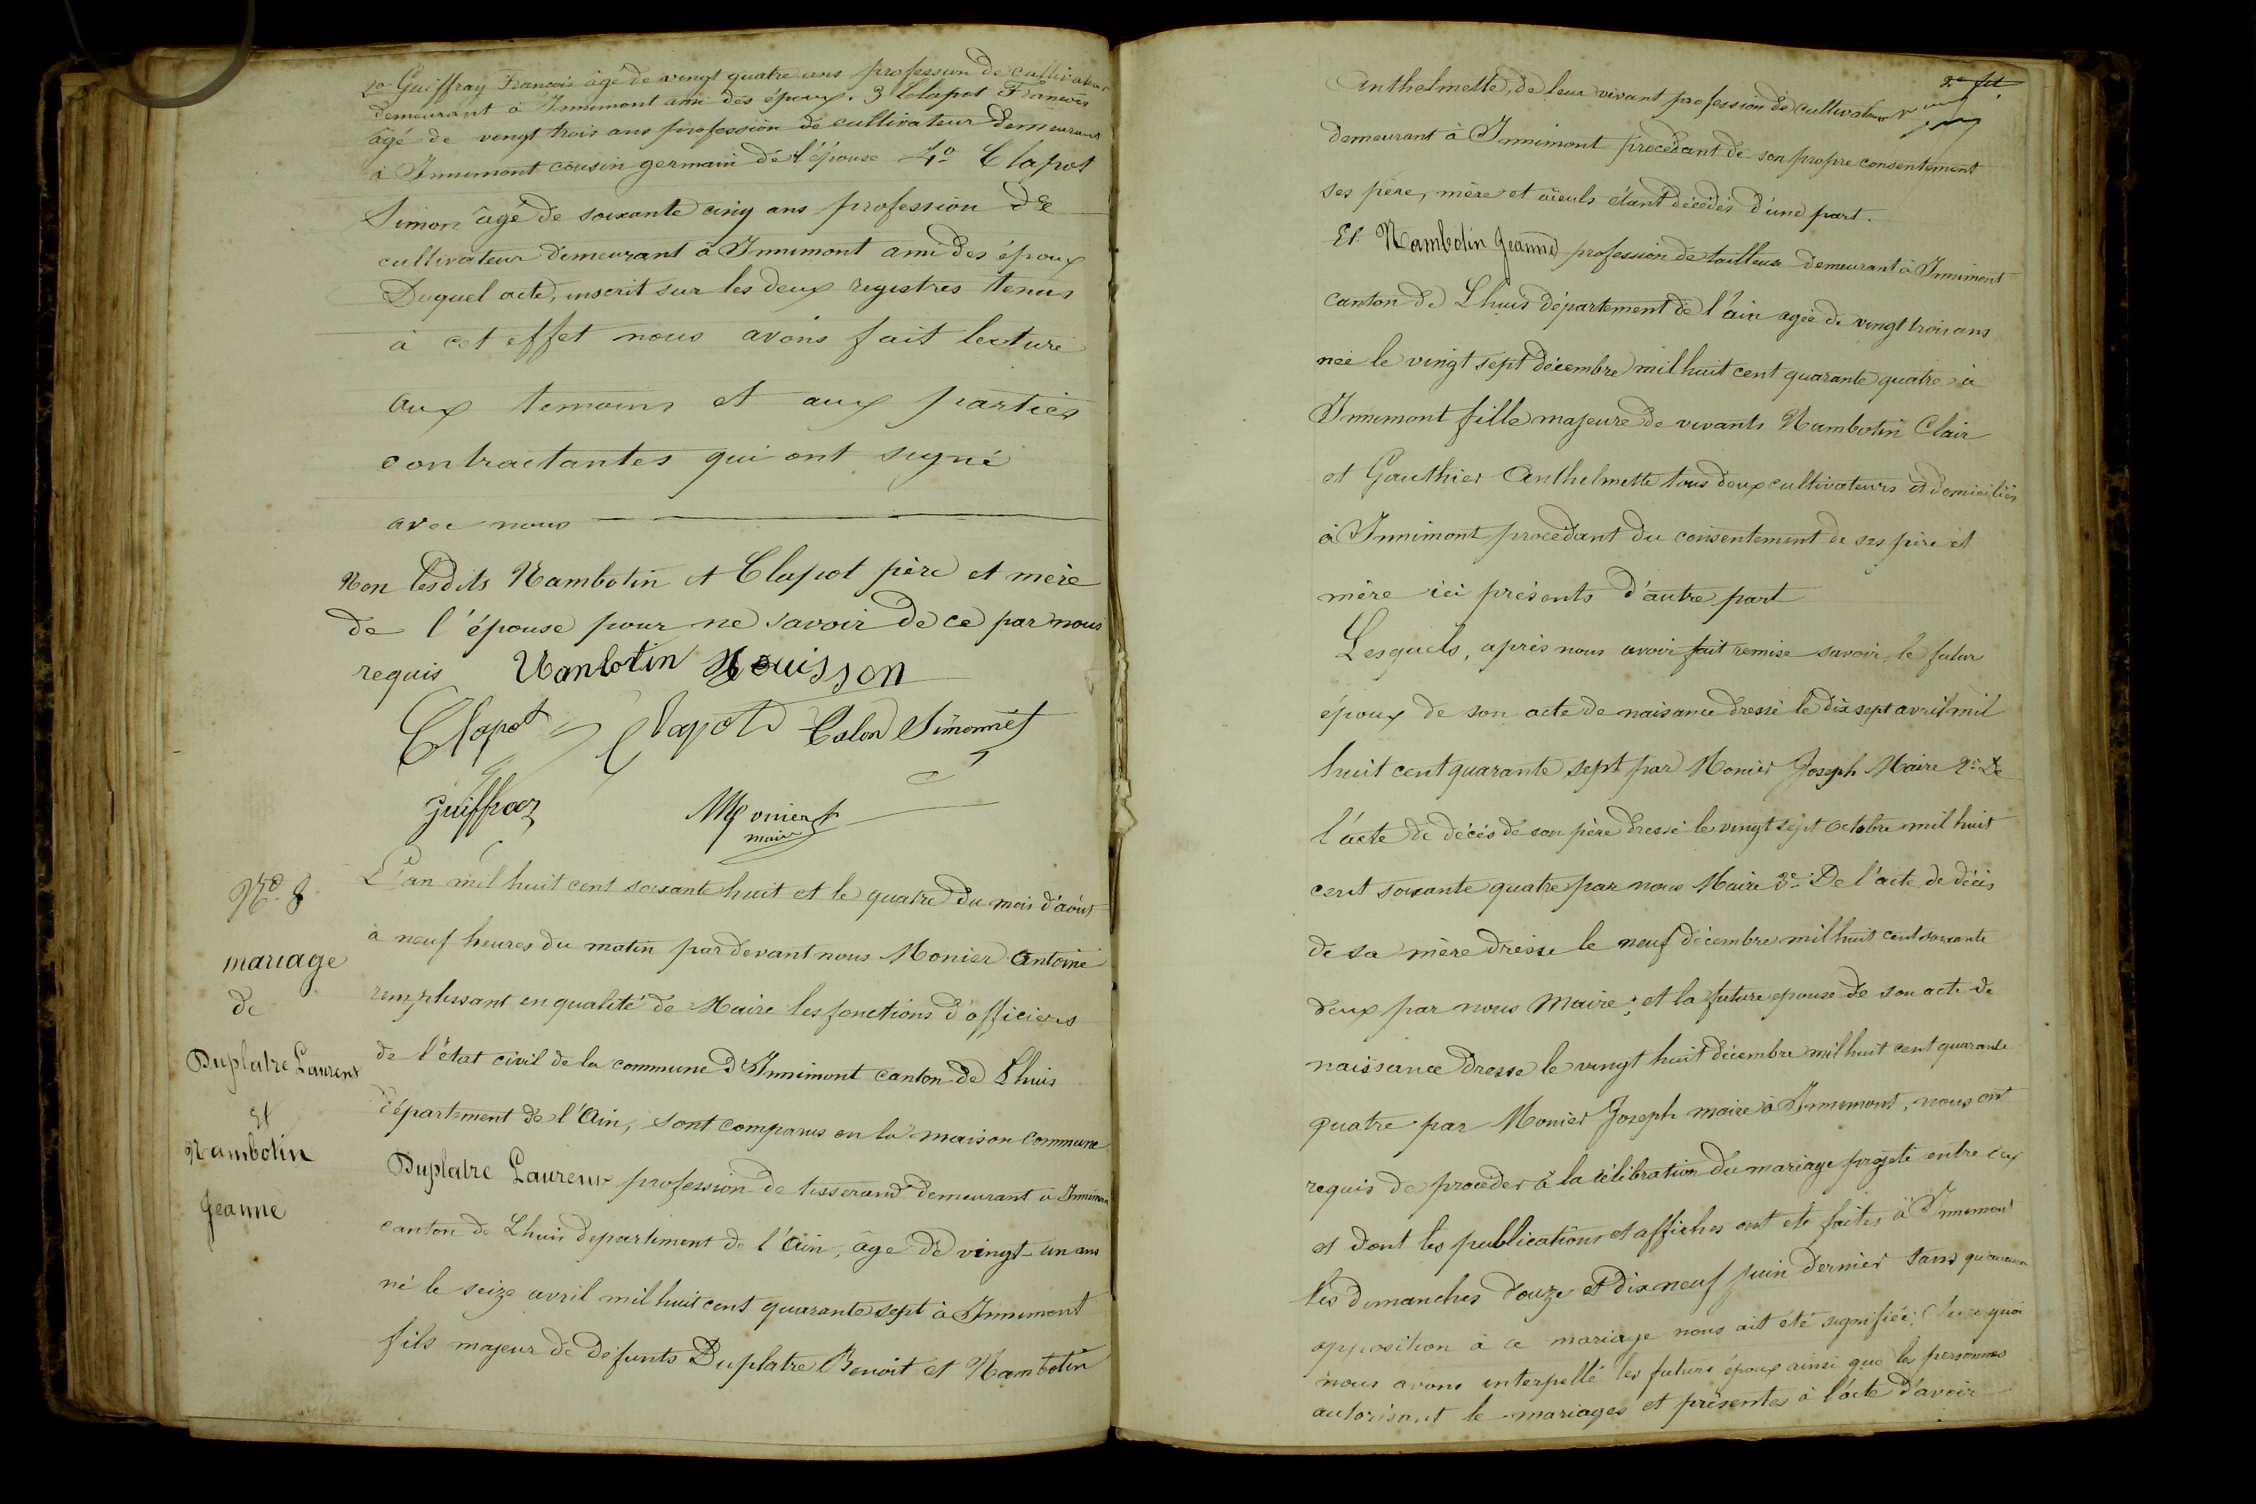 2º Guiffray Francois âgé de vingt quatre ans profession de cultivateur
demeurant à Innimont ami des époux. 3 Clapot Francois
âgé de vingt trois ans profession de cultivateur demeurant
à Innimont cousin germain de l'épouse 4º Clapot
Simon âgé de soixante cinq ans profession de
cultivateur demeurant à Innimont ami des époux
Duquel acte, inscrit sur les deux registres tenus
à cet effet nous avons fait lecture
aux temoins et aux parties
contractantes qui ont signé
avec nous
Non lesdits Nambotin et Clapot père et mère
de l'épouse pour ne savoir de ce par nous
requis Nanbotin Mouisson
Clapot Clapot Calon Simonnet
Guiffray Monier
maire
Nº 8
mariage
de
Duplatre Laurent
et
Nambotin
Jeanne
L'an mil huit cent soixante huit et le quatre du mois d'août
à neuf heures du matin par devant nous Monier Antoine
remplissant en qualité de Maire les fonctions d'officiers
de l'état civil de la commune d'Innimont canton de Lhuis
département de l'Ain, sont comparus en la maison commune
Duplatre Laurent profession de tisserand demeurant à Innimont
canton de Lhuis departement de l'Ain, âge de vingt-un ans
né le seize avril mil huit cent quarante sept à Innimont
fils majeur de defunts Duplatre Benoit et Nambotin
Anthelmette, de leur vivant profession de cultivateur
demeurant à Innimont procedant de son propre consentement
ses père, mère et aïeuls étant décédés d'une part.
Et Nambotin Jeanne profession de tailleuse demeurant à Innimont
canton de Lhuis département de l'ain agée de vingt trois ans
née le vingt sept décembre mil huit cent quarante quatre à
Innimont fille majeure de vivants Nambotin Clair
et Gauthier Anthelmette tous deux cultivateurs et domiciliés
à Innimont procédant du consentement de ses père et
mère ici présents d'autre part
Lesquels, après nous avoir fait remise savoir, le futur
époux de son acte de naisance dressé le dix sept avril mil
huit cent quarante sept par Monier Joseph Maire 2º De
l'acte de décés de son père dressé le vingt sept octobre mil huit
cent soixante quatre par nous Maire 3º De l'acte de décés
de sa mère dresse le neuf décembre mil huit cent soixante
deux par nous Maire; et la future epouse de son acte de
naissance dresse le vingt huit décembre mil huit cent quarante
quatre par Monier Joseph maire à Innimont, nous ont
requis de procéder à la célébration du mariage projeté entre eux
et dont les publications et affiches ont eté faites à Innimont
les dimanches douze et dix neuf juin dernier sans qu'aucune
opposition à ce mariage nous ait été signifiée; Sur quoi
nous avons interpellé les futurs époux ainsi que les personnes
autorisant le mariages et présentes à l'acte d'avoir